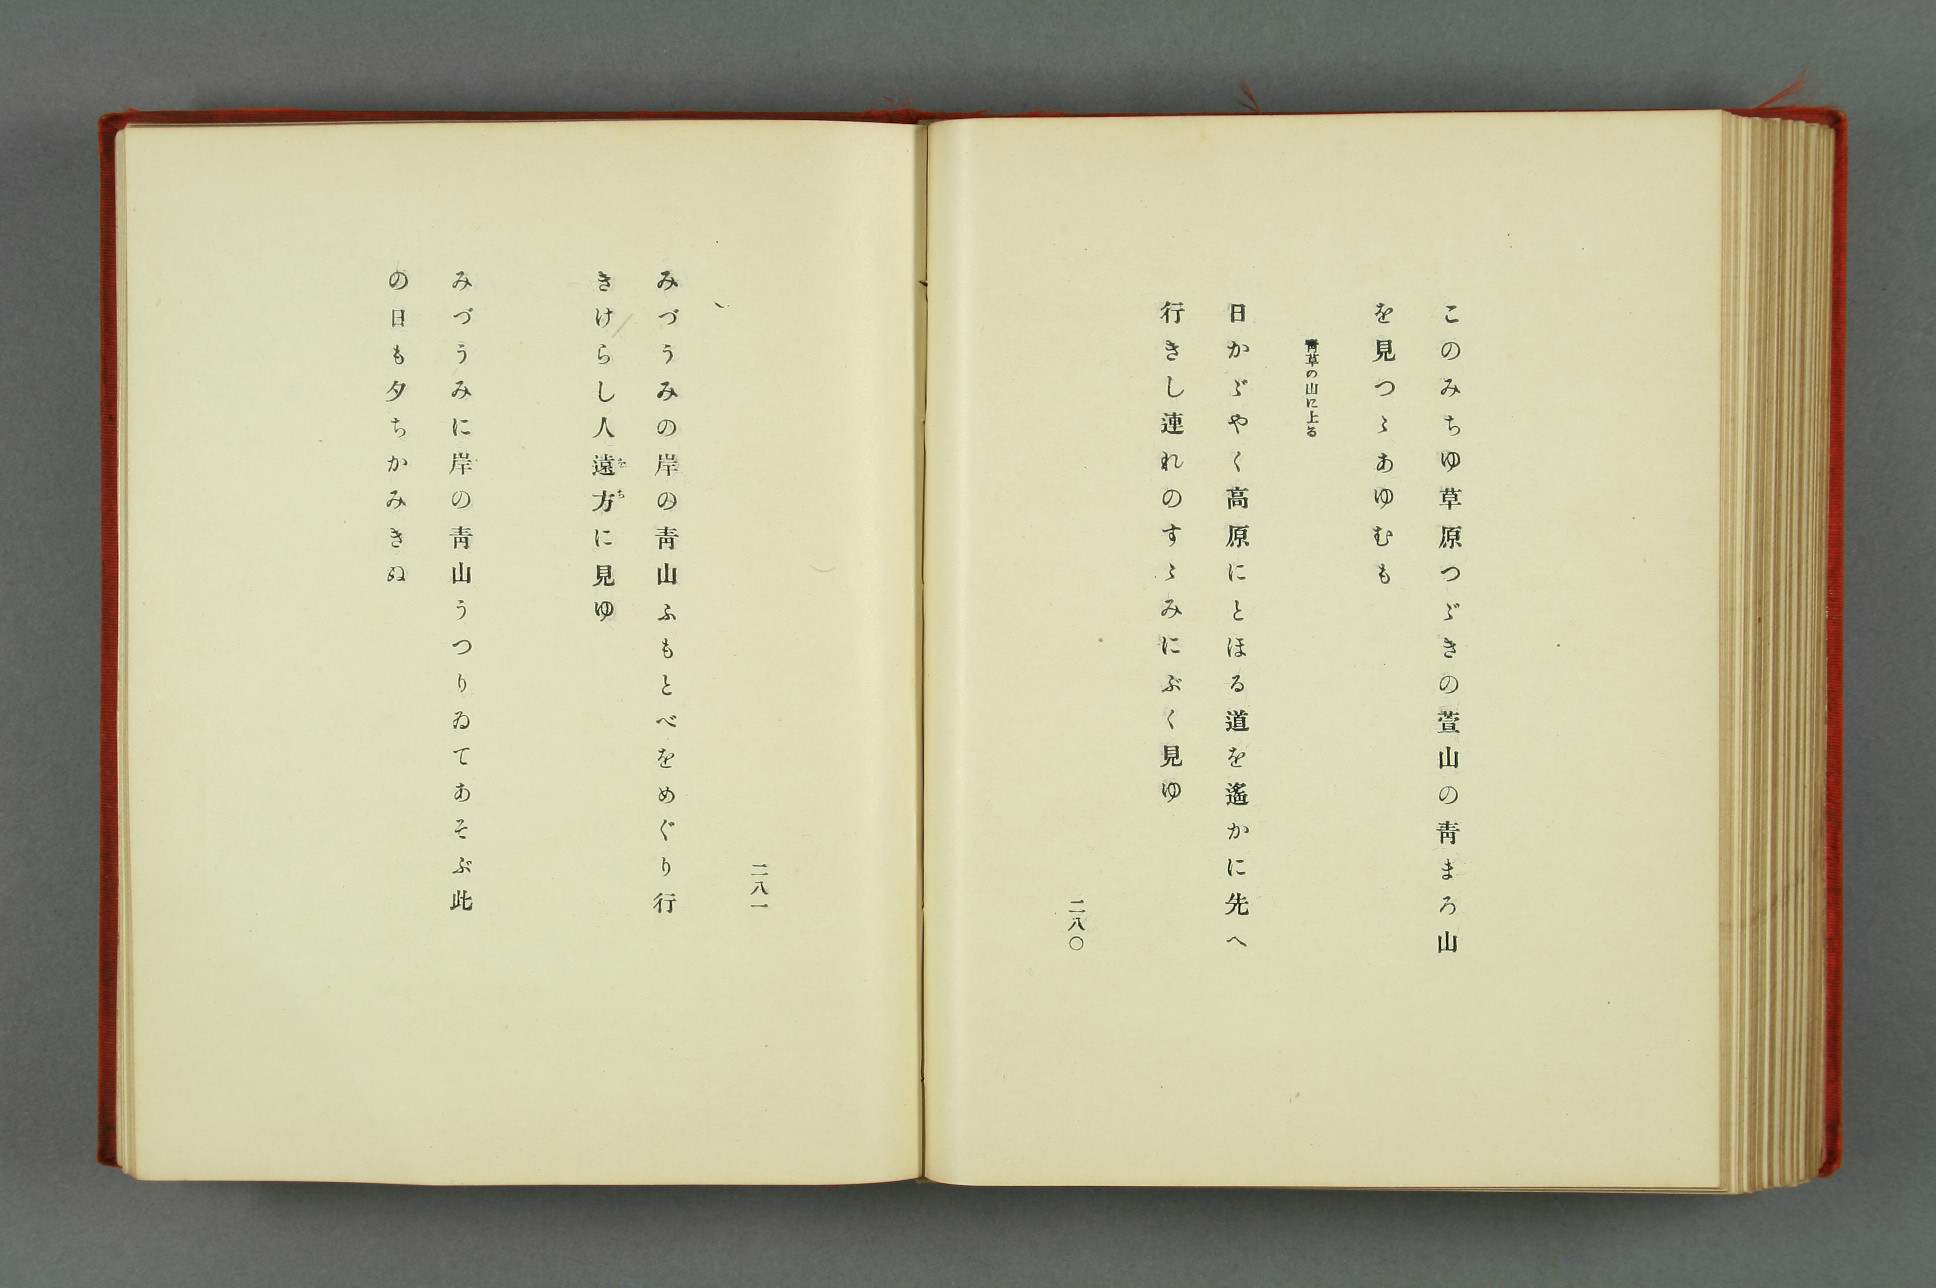 このみちゆ草原つゞきの萱山の靑まろ山
を見つゝあゆむも
靑草の山に上る
日かゞやく高原にとほる道を遙かに先へ
行きし連れのすゝみにぶく見ゆ
二八〇
二八一
みづうみの岸の靑山ふもとべをめぐり行
きけらし人遠方に見ゆ
をち
みづうみに岸の靑山うつりゐてあそぶ此
の日も夕ちかみきぬ